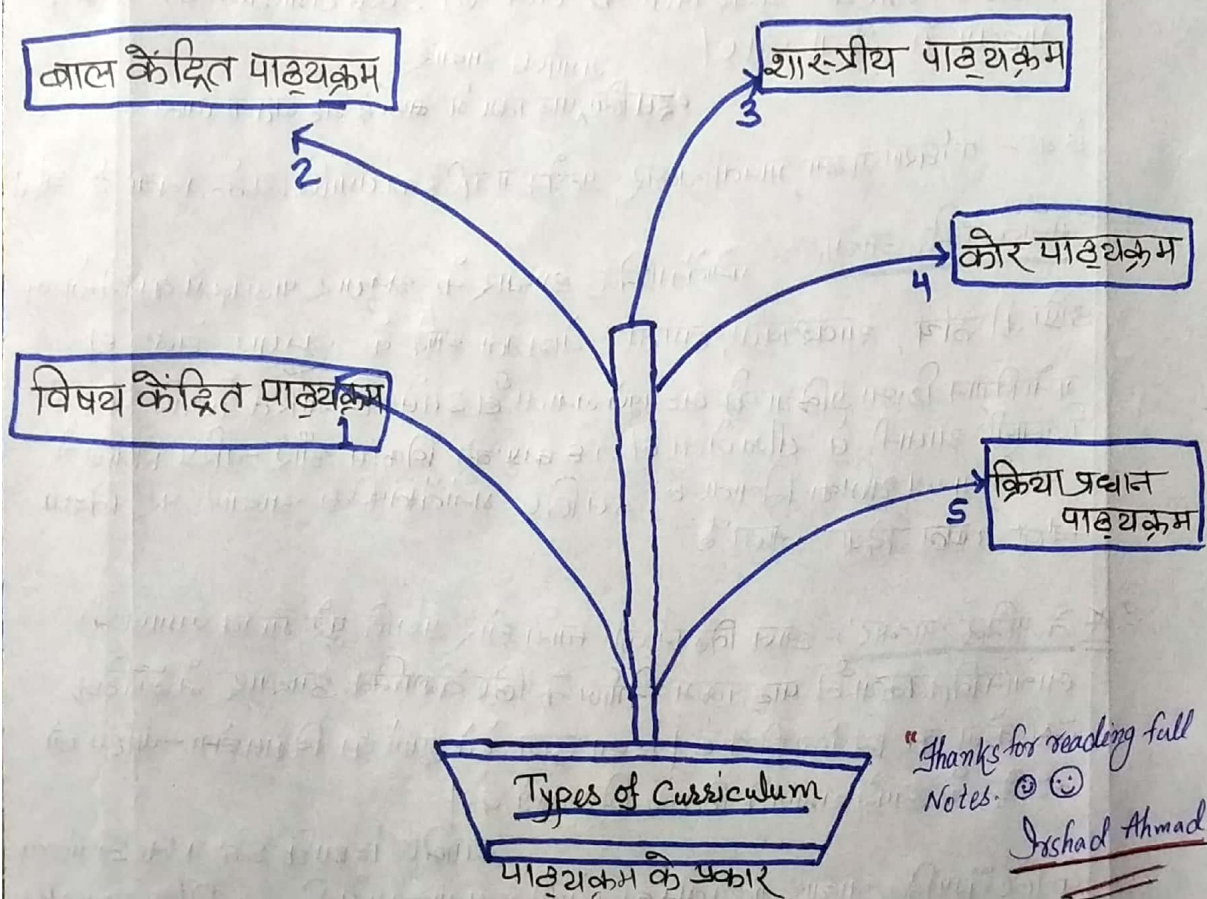 बाल केंद्रित पाठ्यक्रम
2
शास्त्रीय पाठ्यक्रम
3
कोर पाठ्यक्रम
4
विषय केंद्रित पाठ्यक्रम
1
क्रिया प्रधान
पाठ्यक्रम
5
Types of Curriculum
पाठ्यक्रम के प्रकार
"Thanks for reading full
Notes. ☺ ☺
Irshad Ahmad